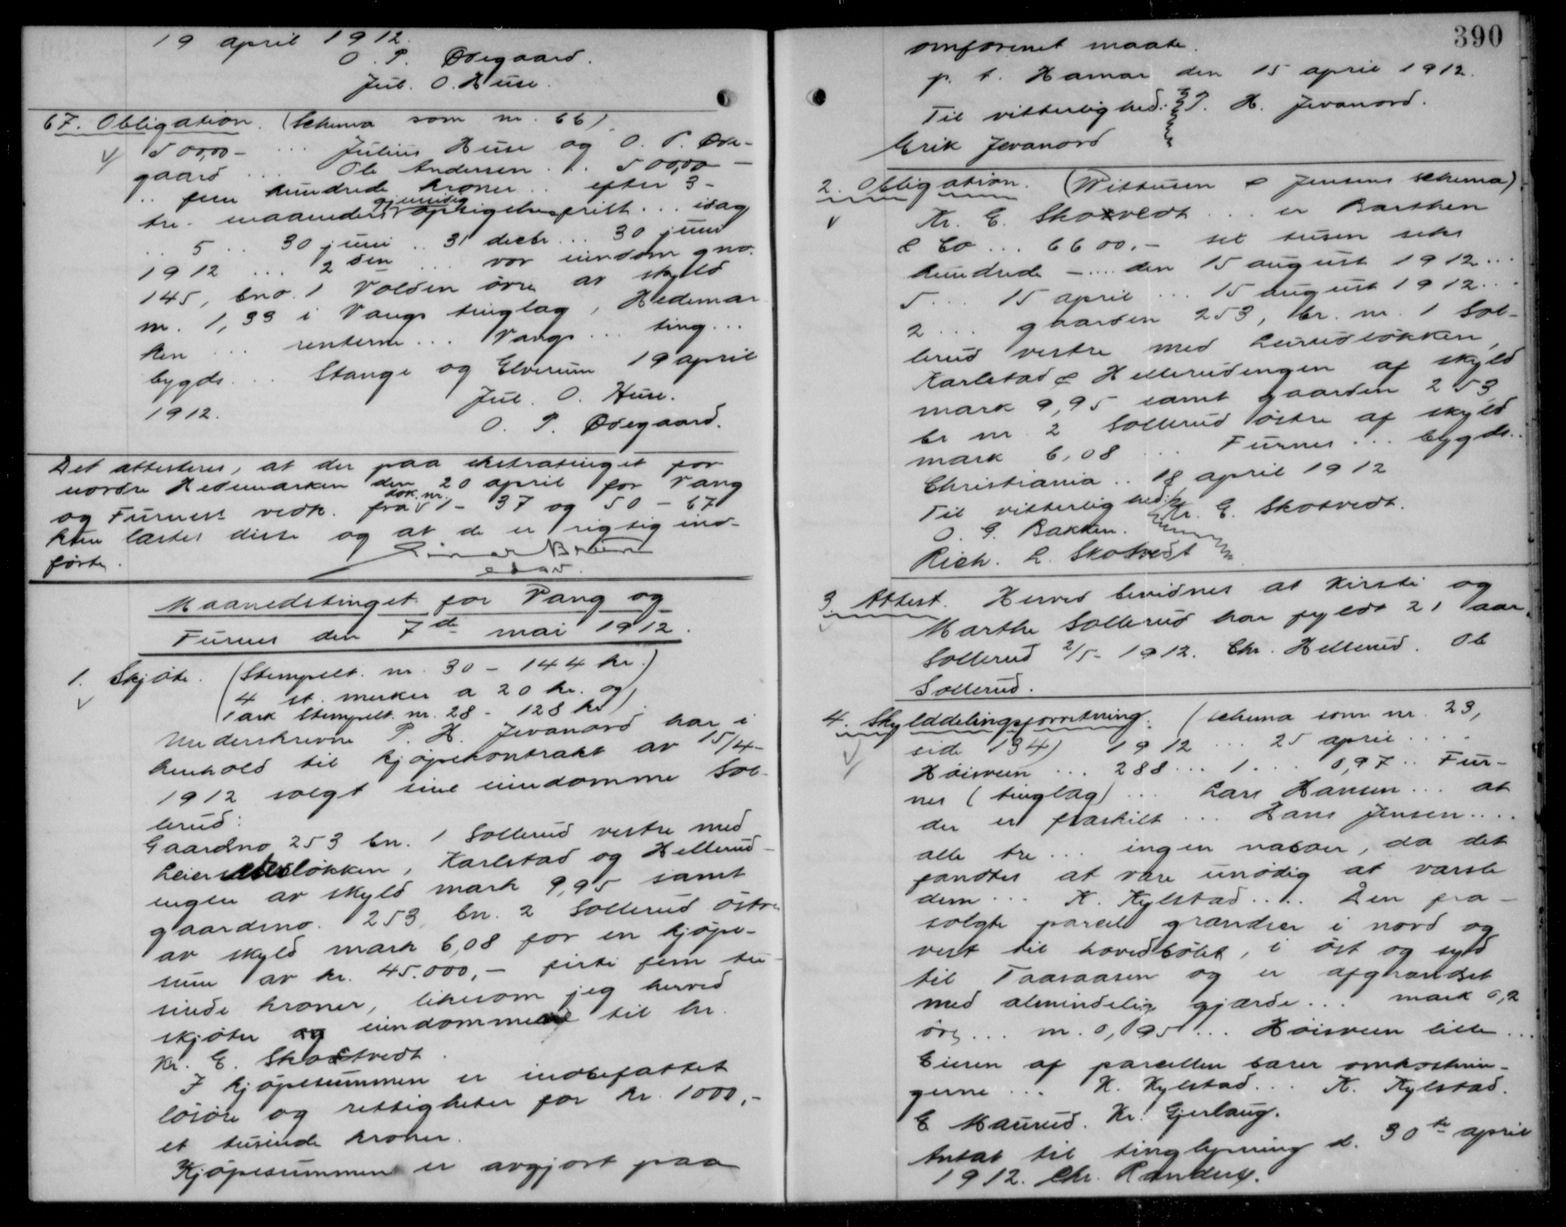 19 april 1912.
O. P. Ødegaard.
Jul. O. Huse.
67. Obligation. (Schema som nr. 66)
500,00 - ... Julius Huse og O. P. Øde-
gaard ... Ole Andersen ... 500,00 -
.. fem hundrede kroner .. efter 3 -
tre maaneders gjensidig opsigelsesfrist ... idag
.. 5 .. 30 juni .. 31 decbr ... 30 juni
1912 ... 2den ... vor eiendom gno.
145, bno. 1 Volden øvre av skyld
m. 1,33 i Vangs tinglag, Hedemar-
ken ... renterne ... Vangs ... ting...
bygds ... Stange og Elverum 19 april
1912. Jul. O. Huse.
O. P. Ødegaard.
Det attesteres, at der paa ekstratinget for
nordre Hedemarken den 20 april for Vang
og Furnes vedk. fra dok. nr. 1 - 37 og 50 - 67
kun læstes disse og at de er rigtig ind-
førte.
Maanedstinget for Vang og
Furnes den 7de mai 1912.
1. Skjøte. (Stempelt. nr. 30 - 144 kr.)
4 st. merker a 20 kr. og
1 ark Stempelt. nr. 28 - 128 kr.
Underskrevne P. H. Jevanord har i
henhold til kjøpekontrakt av 15/4-
1912 solgt sine eiendomme Sol-
lerud:
Gaardsno. 253 bn. 1 Sollerud vestre med
løkken, Karlstad og Hellerud-
engen av skyld mark 9,95 samt
gaardsno. 253, bn. 2 Sollerud østre
av skyld mark 6,08 for en kjøpe-
sum av kr. 45.000,- firti fem tu-
sinde kroner, likesom jeg herved
skjøter eiendommene til hr.
Kr. E. Skotvedt.
I kjøpesummen er indbefattet
løsøre og rettigheter for kr. 1000,-
et tusinde kroner.
Kjøpesummen er avgjort paa
390
omforenet maate.
p. t. Hamar den 15 april 1912.
Til vitterlighed: P. H. Jevanord.
Erik Jevanord
2. Obligation. (Wittusen & Jensens schema)
Kr. E. Skotvedt ... er Barthen
& Co ... 6600.- sex tusen seks
hundrede - ... den 15 august 1912 ...
5 ... 15 april ... 15 august 1912 ...
2 ... gaarden 253, br. nr. 1 Sol-
lerud vestre med løkken,
Karlstad & Hellerudengen af skyld
mark 9,95 samt gaarden 253
br nr. 2 Sollerud østre af skyld
mark 6,08 ... Furnes ... bygds..
Christiania .. 18 april 1912
Til vitterlighed: Kr. E. Skotvedt.
O. G. Bakken.
Rich. L. Skotvedt
3. Attest. Herved bevidnes at Kirsti og
Marthe Sollerud har fyldt 21 aar.
Sollerud 2/5 - 1912. Chr. Hellerud. Ole
Sollerud.
4. Skylddelingsforretning. (schema som nr. 23,
side 134) 1912 ... 25 april ....
Høisveen ... 288 ... 1 ... 0,97 .. Fur-
nes (tinglag) ... Lars Hansen ... at
der er fraskilt ... Hans Jensen ....
alle tre ... ingen naboer, da det
fandtes at være unødig at varsle
dem ... K. Kylstad .... Den fra-
solgte parcel grændser i nord og
vest til hovedbølet, i øst og syd
til Taasaasen og er afgrændset
med almindelig gjærde ... mark 0,2
øre ... m. 0,95 ... Høisveen lille ...
Eieren af parcellen bærer omkostnin-
gerne ... K. Kylstad ... K. Kylstad.
E Maurud. Kr. Gjerlaug.
Antat til tinglysning d. 30te april
1912. Chr. Randers.